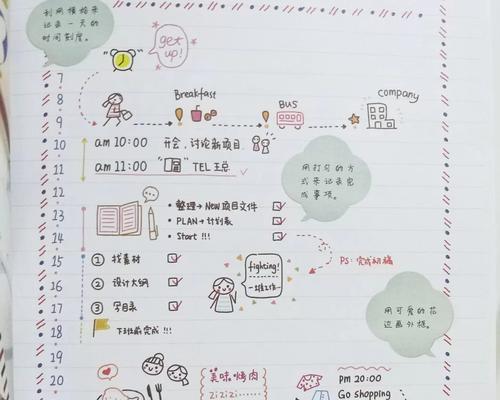 利用横格来
记录一天的
时间刻度。
get
up!
7
8
9
10
11
12
13
14
15
16
17
18
19
20
Breakfast
BUS
company
am 10:00 开会,讨论新项目
am 11:00 TEL 王总
用打勾的方
式来记录完
成事项。
• 整理→New项目文件
• PLAN→计划表
• Start !!!
PS: 完成初稿
① 找素材
② 设计大纲
③ 写目录
fighting!
下班前完成!!!
用可爱的花
边画外框。
美味烤肉
zizizi......
PM 20:00
Go shopping